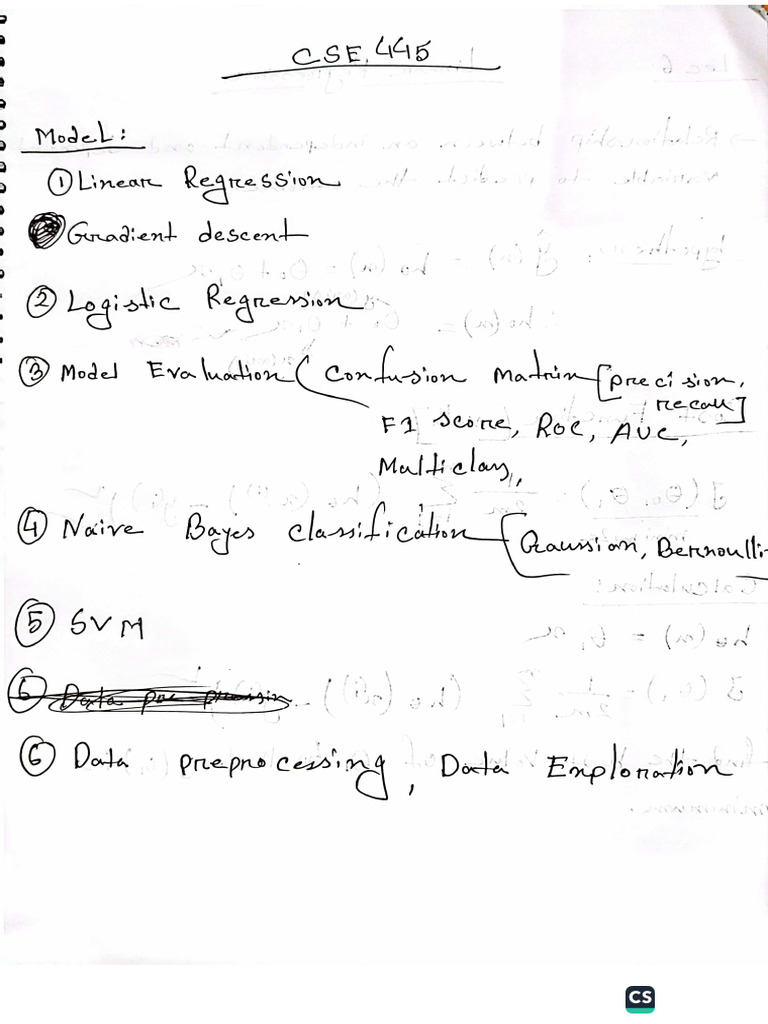 CSE 445
Model:
① Linear Regression
Gradient descent
② Logistic Regression
③ Model Evaluation ( Confusion Matrix [precision,
recall]
F1 score, ROC, AUC,
Multiclass,
④ Naive Bayes classification { Gaussian, Bernoulli
⑤ SVM
⑥ Data pre processin
⑥ Data preprocessing, Data Exploration
CS